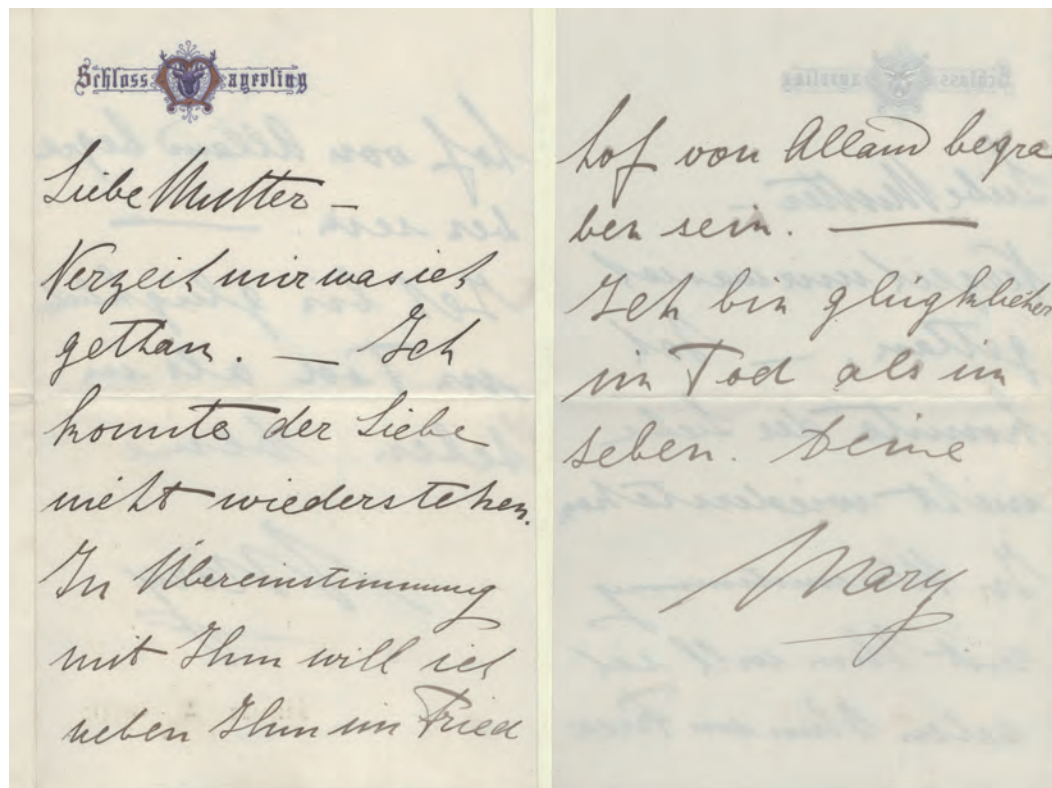 Schloss Mayerling
Liebe Mutter –
Verzeih mir was ich
gethan. — Ich
konnte der Liebe
nicht wiederstehen.
In Übereinstimmung
mit Ihm will ich
neben Ihm im Fried
hof von Alland begra
ben sein. —
Ich bin glügklicher
im Tod als im
Leben. Deine
Mary